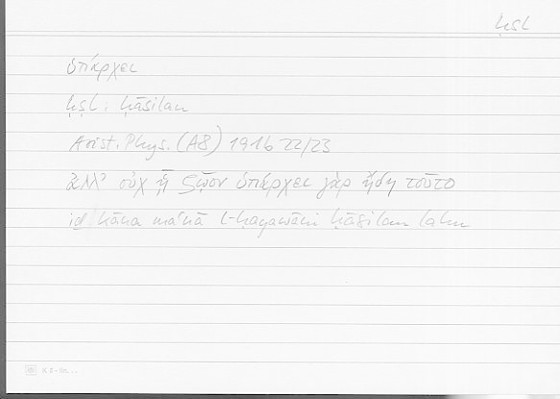 ḥṣl
ὑπάρχει
ḥṣl : ḥāṣilan
Arist. Phys. (A8) 191b 22/23
ἀλλ' οὐχ ᾗ ζῷον ὑπάρχει γὰρ ἤδη τοῦτο
iḏ kāna maʿnā l-ḥayawāni ḥāṣilan lahu